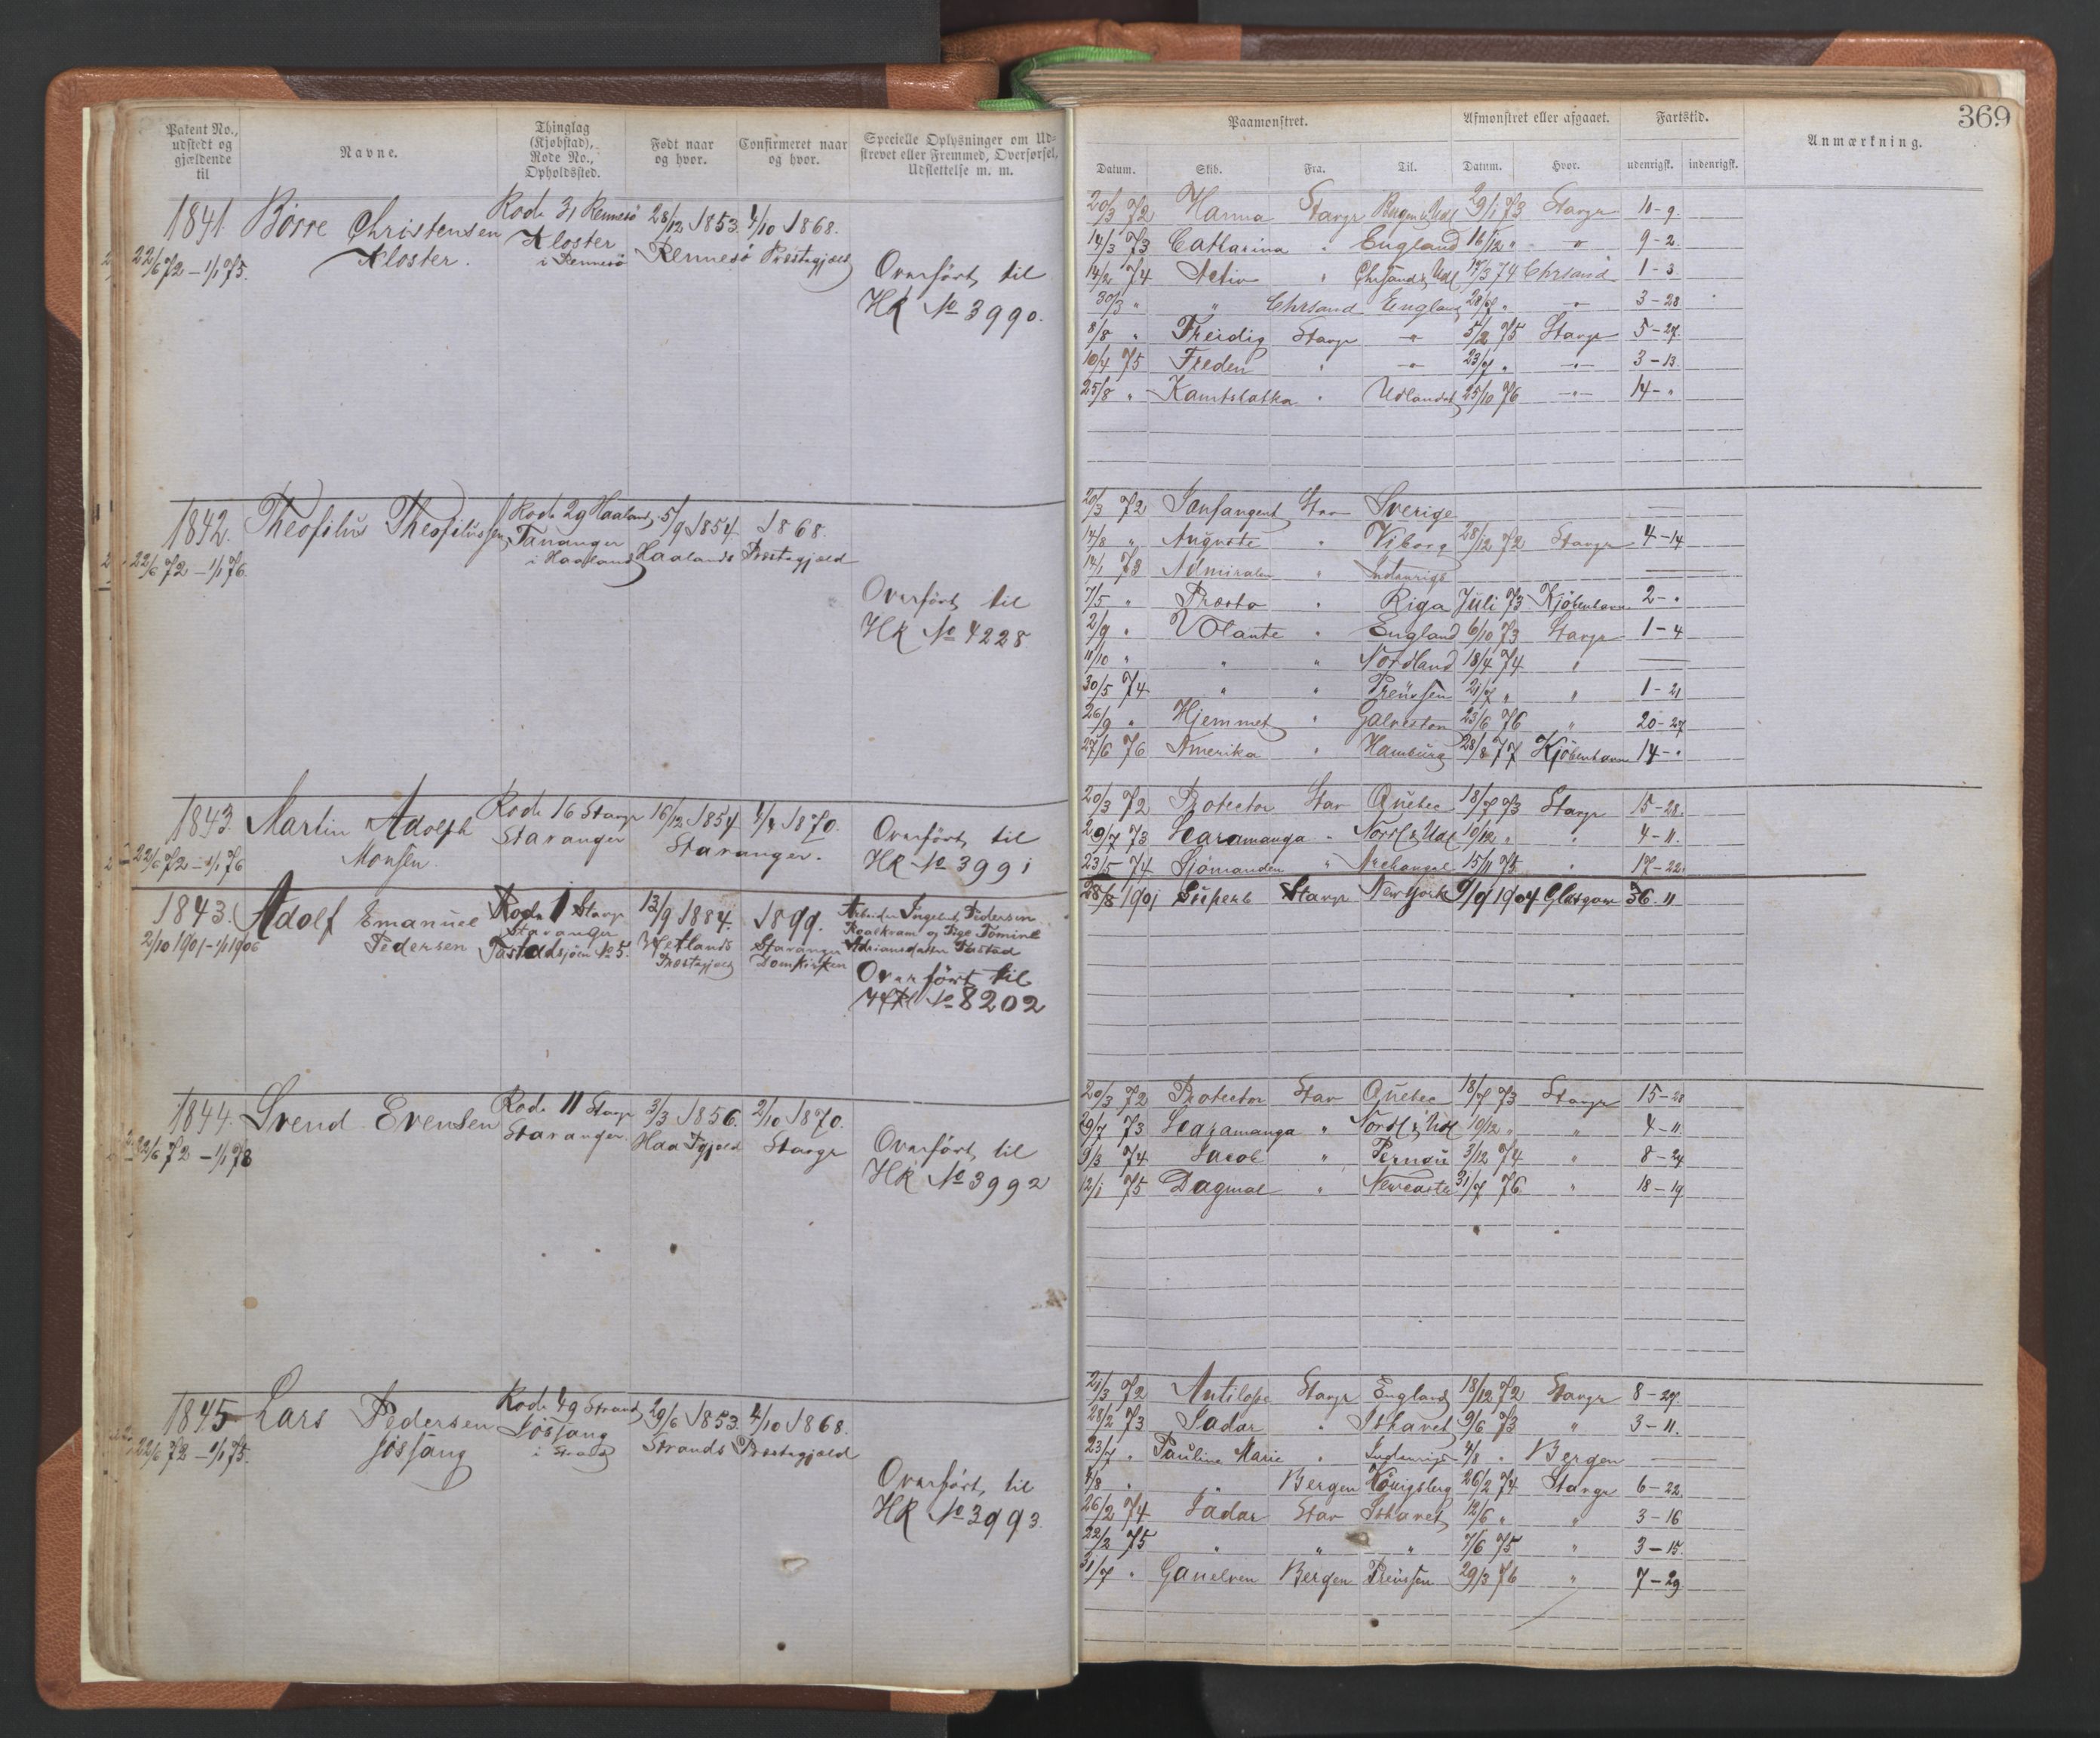 369
Patent No., udstedt og gjældende til
Navne.
Thinglag (Kjøbstad), Rode No., Opholdssted.
Født naar og hvor.
Confirmeret naar og hvor.
Specielle Oplysninger om Udskrevet eller Fremmed, Overførsel, Udslettelse m. m.
Paamønstret.
Afmønstret eller afgaaet.
Fartstid.
Anmærkning.
Datum. Skib. Fra. Til. Datum. Hvor. udenrigsk. indenrigsk.
1841. Børre Christensen Rode 31 Rennesö 28/12 1853. 4/10 1868.
22/6 72 – 1/1 75. Kloster. Kloster i Rennesö Rennesö Præstegjæld
Overført til
HR No 3990.
20/3 72 Hanna Stavgr Bergen & Udl 29/1 73 Stavgr 10-9.
14/3 73 Catharina " England 16/12 " " 9-2.
14/2 74 Activ " Chrsand & Udl 17/3 74 Chrsand 1-3
30/3 " " Chrsand England 28/7 " " 3-28
8/8 " Freidig Stavgr " 5/2 75 Stavgr 5-27.
10/4 75 Freden " " 23/7 " " 3-13.
25/8 " Kamtskatka " Udlandet 25/10 76 " 14-"
1842. Theofilus Theofilussen Rode 29 Haaland 5/9 1854 1868.
22/6 72 – 1/1 76. Tananger i Haaland Haalands Præstegjæld
Overført til
HR No 4228
20/3 72 Sanfangent Stav Sverige
14/8 " Auguste " Viborg 28/12 72 Stavgr 4-14
14/1 73 Admiralen " Indenrigs
7/5 " Præsto " Riga Juli 73 Kjøbenhavn 2-"
2/9 " Volante " England 6/10 73 Stavgr 1-4
11/10 " " " Nordland 18/4 74 "
30/5 74 " " Preussen 21/7 " " 1-21
26/9 " Hjemmet " Galveston 23/6 76 " 20-27
27/6 76 Amerika " Hamburg 28/8 77 Kjöbenhavn 14-"
1843. Martin Adolph Rode 16 Stavgr 16/12 1854 4/4 1870.
22/6 72 – 1/1 76 Monsen. Stavanger Stavanger.
Overført til
HR No 3991
20/3 72 Protector Stav Quebec 18/7 73 Stavgr 15-28.
29/7 73 Scaramanga " Nordl & Udl 10/12 " " 4-11.
23/5 74 Sjömanden " Archangel 15/11 75. " 17-22.
1843. Adolf Emanuel Rode 1 Stavgr 13/9 1884. 1899.
2/10 1901 – 1/1 1906 Pedersen Stavanger Tastadsjöen No 5. Hetlands Præstegjæld Stavanger Domkirken
Arbeider Ingebret Pedersen
Roalkvam og Pige Tomine
Adriansdatter Tastad
Overført til
HR No 8202
28/8 1901 Superb Stavgr New York 9/9 1904 Glasgow 36.11
1844. Svend Evensen Rode 11 Stavgr 3/3 1856. 2/10 1870.
22/6 72 – 1/1 78 Stavanger. Haa Pgjæld Stavgr
Overført til
HR No 3992
20/3 72 Protector Stav Quebec 18/7 73 Stavgr 15-28
29/7 73 Scaramanga " Nordl & Udl 10/12 " " 4-11
9/3 74 Jacob " Pernau 3/12 74 " 8-24
12/1 75 Dagmal " Newcastle 31/7 76 " 18-19
1845 Lars Pedersen Rode 49 Strand 29/6 1853. 4/10 1868.
22/6 72 – 1/1 75. Jössang Jössang i Strand Strands Præstegjæld
Overført til
HR No 3993.
21/3 72 Antilope Stavgr England 18/12 72 Stavgr 8-27.
28/2 73 Jadar " Ishavet 9/6 73 " 3-11.
23/7 " Pauline Marie " Indenrigs 4/8 " Bergen
4/8 " " Bergen Königsberg 26/2 74 Stavgr 6-22.
26/2 74 Jadar Stav Ishavet 12/6 " " 3-16
22/2 75 " " " 7/6 75 " 3-15.
31/7 " Ganelven Bergen Preussen 29/3 76 " 7-29